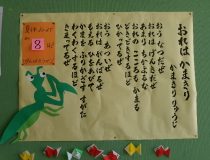 おれはかまきり
かまきりりゅうじ
おう なつだぜ
おれは げんきだぜ
あまり ちかよるな
おれの こころも かまも
どきどきするほど
ひかってるぜ
おう あついぜ
おれは がんばるぜ
もえる ひをあびて
かまを ふりかざす すがた
わくわくするほど
きまってるぜ
8